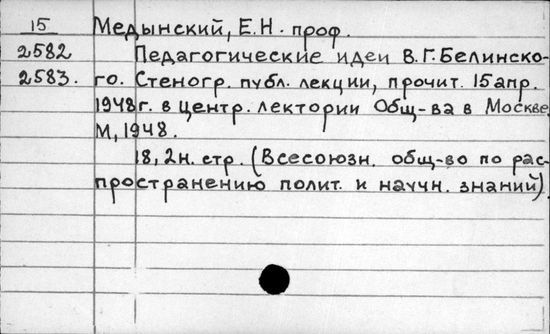 15 Медынский, Е.Н. проф.
2582 Педагогические идеи В.Г.Белинско-
2583. го. Стеногр. публ. лекции, прочит. 15 апр.
1948г. в центр. лектории Общ-ва в Москве,
М, 1948.
18, 2н. стр. (Всесоюзн. общ-во по рас-
пространению полит. и научн. знаний).